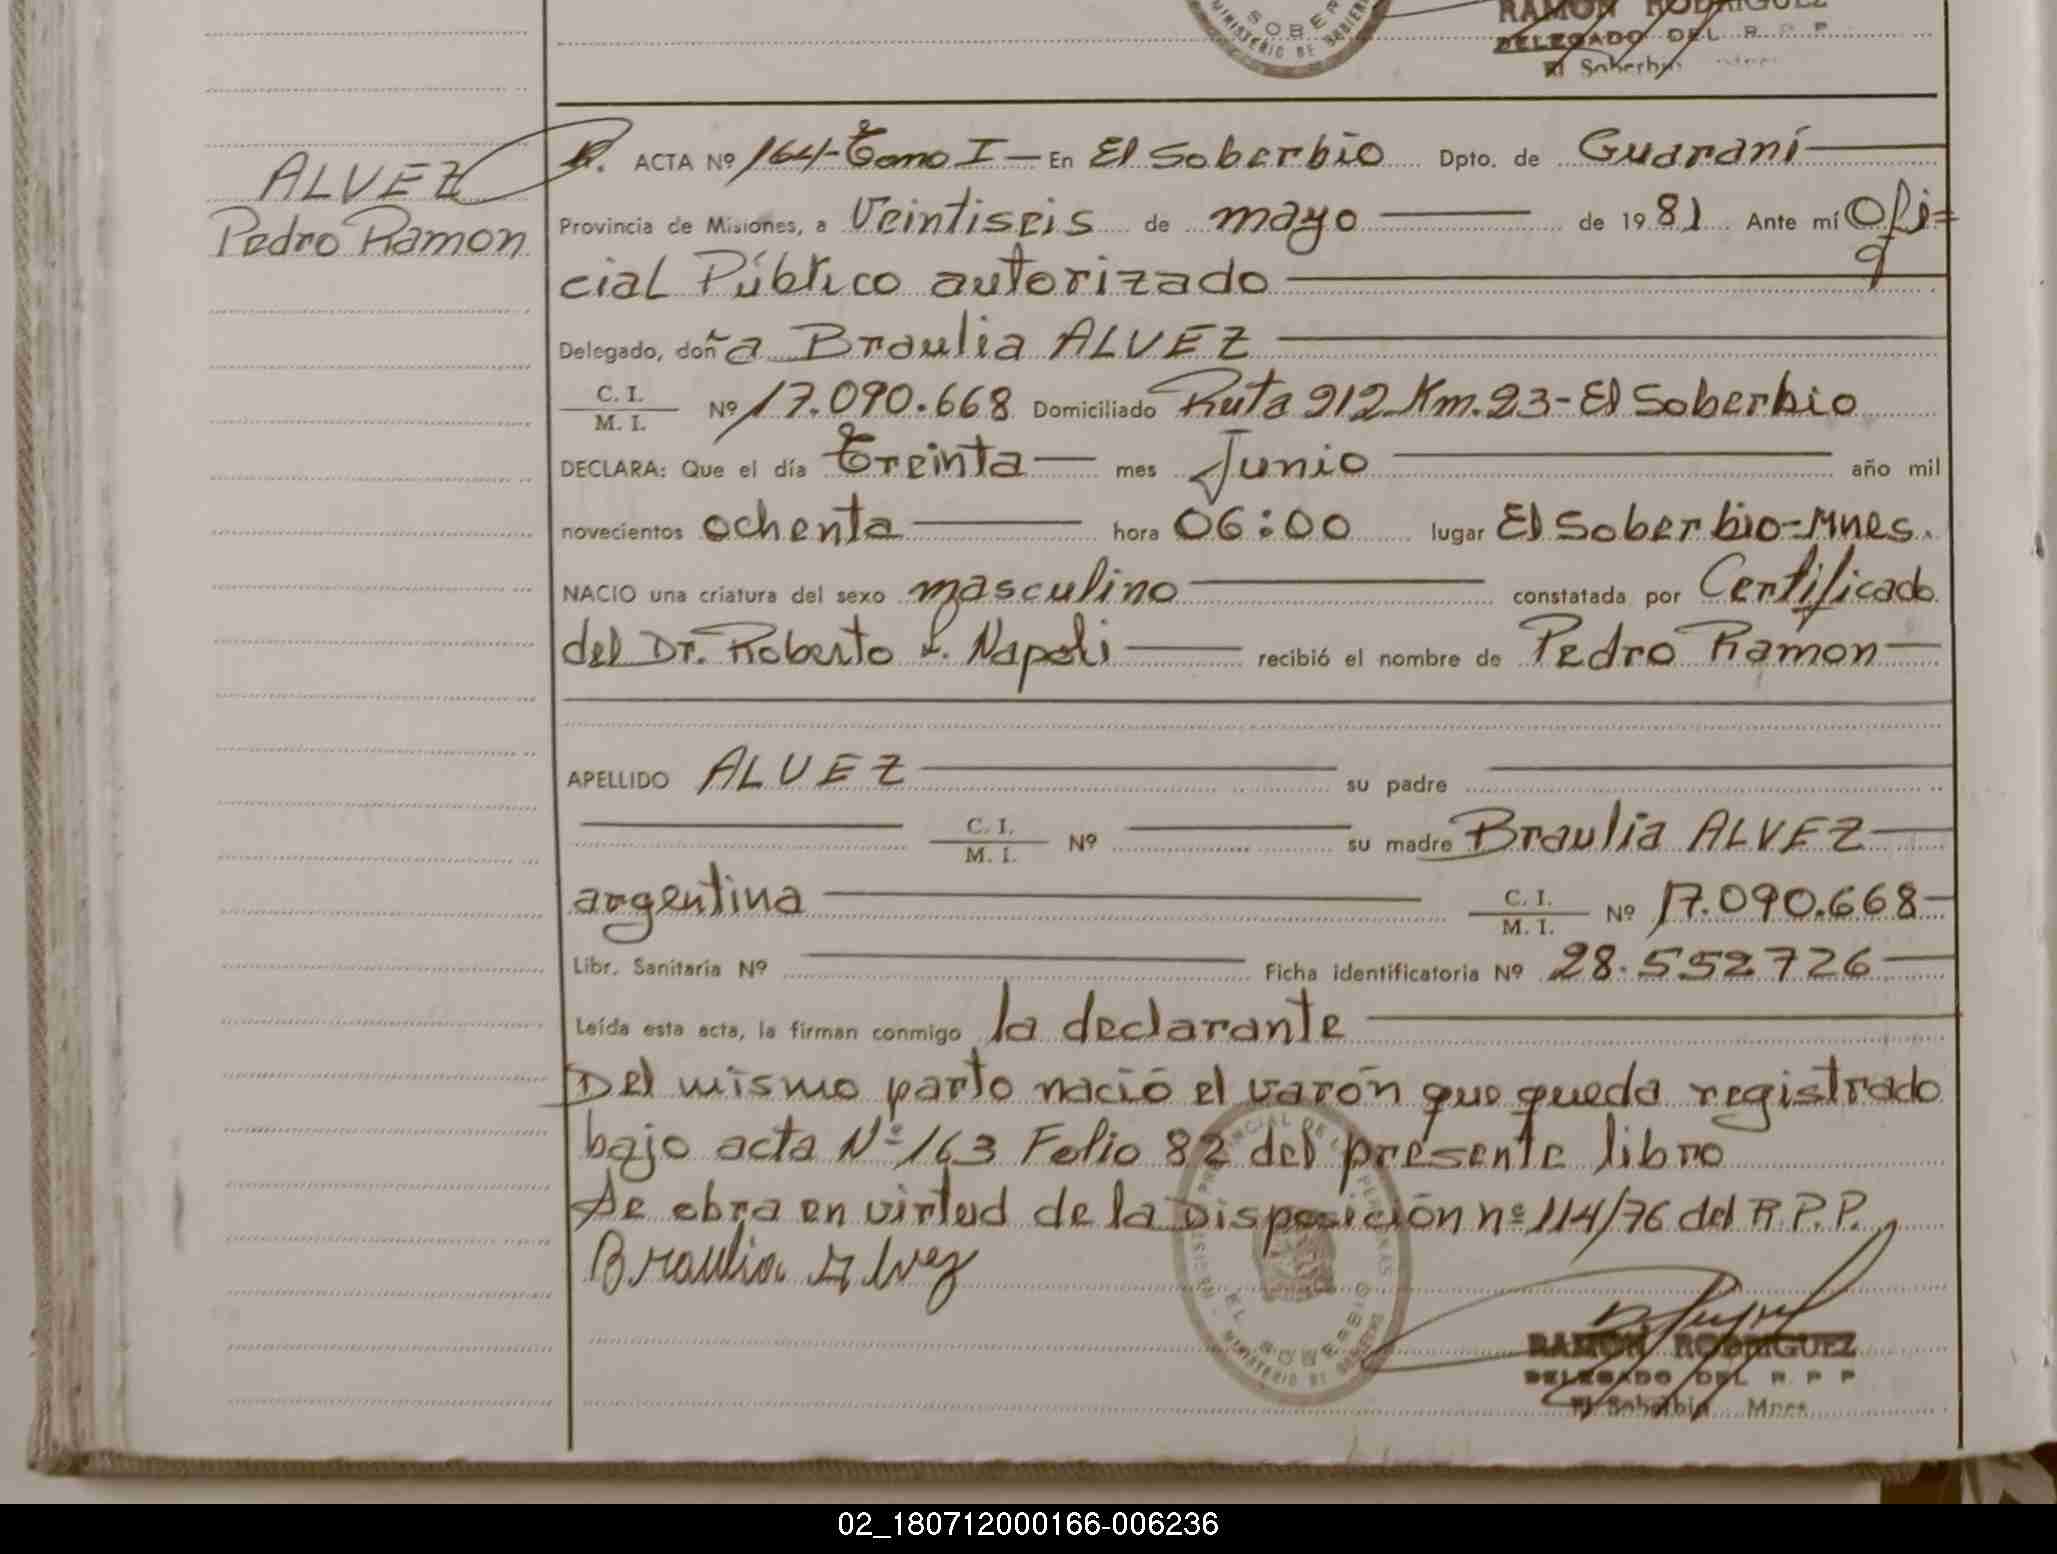 SOBER
MINISTERIO DE GOBIER
RAMON RODRIGUEZ
DELEGADO DEL R. P. P.
El Soberbio
ALVEZ
Pedro Ramon
ACTA Nº 164-Tomo I - En El Soberbio Dpto. de Guaraní
Provincia de Misiones, a Veintiseis de mayo de 1981 Ante mí Ofi=
cial Público autorizado
Delegado, doña Braulia ALVEZ
C. I.
M. I. Nº 17.090.668 Domiciliado Ruta 212 Km. 23-El Soberbio
DECLARA: Que el día Treinta mes Junio año mil
novecientos ochenta hora 06:00 lugar El Soberbio-Mnes.
NACIO una criatura del sexo masculino constatada por Certificado
del Dr. Roberto L. Napoli recibió el nombre de Pedro Ramon
APELLIDO ALVEZ su padre
C. I.
M. I. Nº su madre Braulia ALVEZ
argentina C. I.
M. I. Nº 17.090.668
Libr. Sanitaria Nº Ficha identificatoria Nº 28.552726
Leída esta acta, la firman conmigo la declarante
Del mismo parto nació el varón que queda registrado
bajo acta Nº 163 Folio 82 del presente libro
Se obra en virtud de la Disposición nº 114/76 del R.P.P.
Braulia Alvez
EL SOBERBIO
RAMON RODRIGUEZ
DELEGADO DEL R. P. P
El Soberbio Mnes
02_180712000166-006236